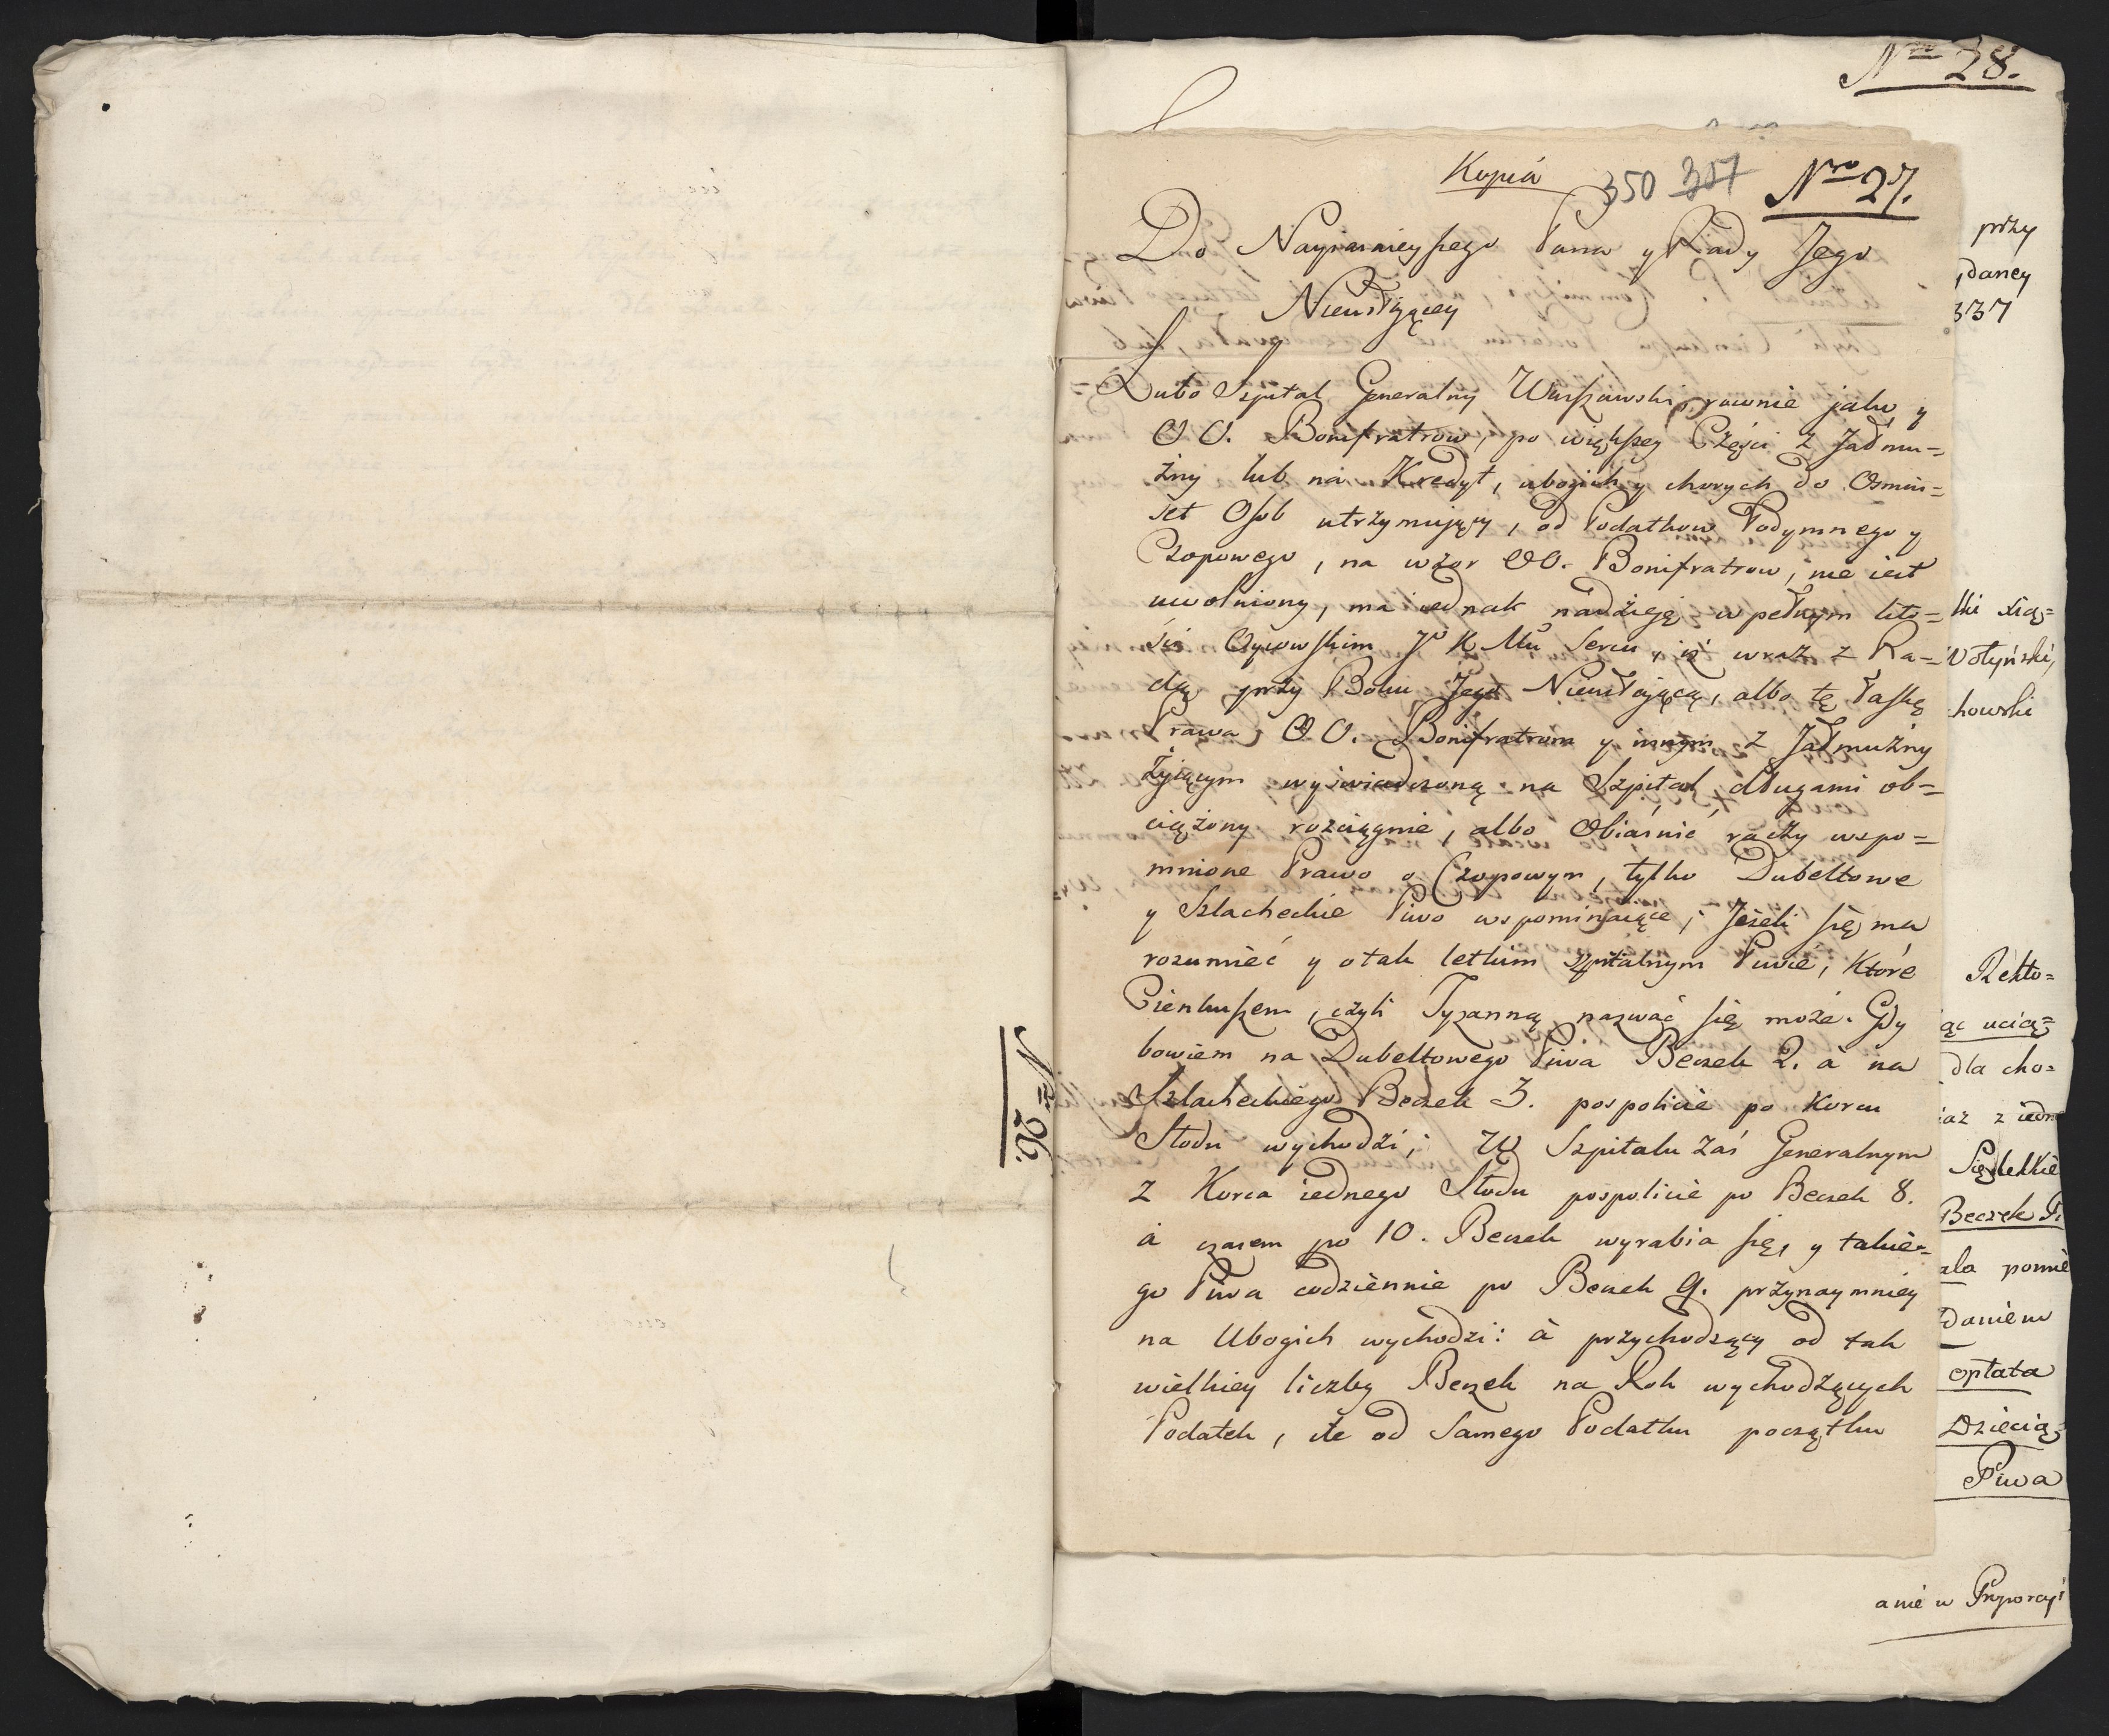 Nro 28.
Kopiá 350 307 Nro 27.
Do Nayiasnieyszego Pana y Rady Jego
Nieustaiącey
Lubo Szpital Generalny Warszawski, rownie jako y
OO. Bonifratrow, po większey Części z Jałmu=
żny lub na Kredyt, ubogich y chorych do Osmiu=
set Osob utrzymujący, od Podatkow Podymnego y
Czopowego, na wzor OO. Bonifratrow, nie iest
uwolniony, ma iednak nadzieję w pełnym lito=
ści Oycowskim J K Mci Sercu, iż wraz z Ra=
dą przy Boku Jego Nieustającą, albo tę łaskę
Prawa OO. Bonifratrom y innym z Jałmużny
żyiącym wyświadczoną na Szpital długami ob=
ciążony rozciągnie, albo Obiaśnić raczy wspo=
mnione Prawo o Czopowym, tylko Dubeltowe
y Szlacheckie Piwo wspominaiące; Jeżeli się ma
rozumieć y o tak letkim szpitalnym Piwie, Które
Cienkuszem, czyli Tyzanną nazwać się może. Gdy
bowiem na Dubeltowego Piwa Beczek 2. à na
Szlacheckiego Beczek 3. pospolicie po Korcu
Słodu wychodzi; W Szpitalu zaś Generalnym
z Korca iednego Słodu pospolicie po Beczek 8.
à czasem po 10. Beczek wyrabia się, y takie=
go Piwa codziennie po Beczek 9. przynaymniey
na Ubogich wychodzi: à przychodzący od tak
wielkiey liczby Beczek na Rok wychodzących
Podatek, ile od Samego Podatku początku
Nro 26.
przy
daney
337
lki xiąż=
Wołyński,
howski
Rekto=
ąc uciąż
dla cho=
iaz z iedn
letkie
Beczek Pi
ala pomie
daniem
opłata
Dziecią
Piwa
a nie w